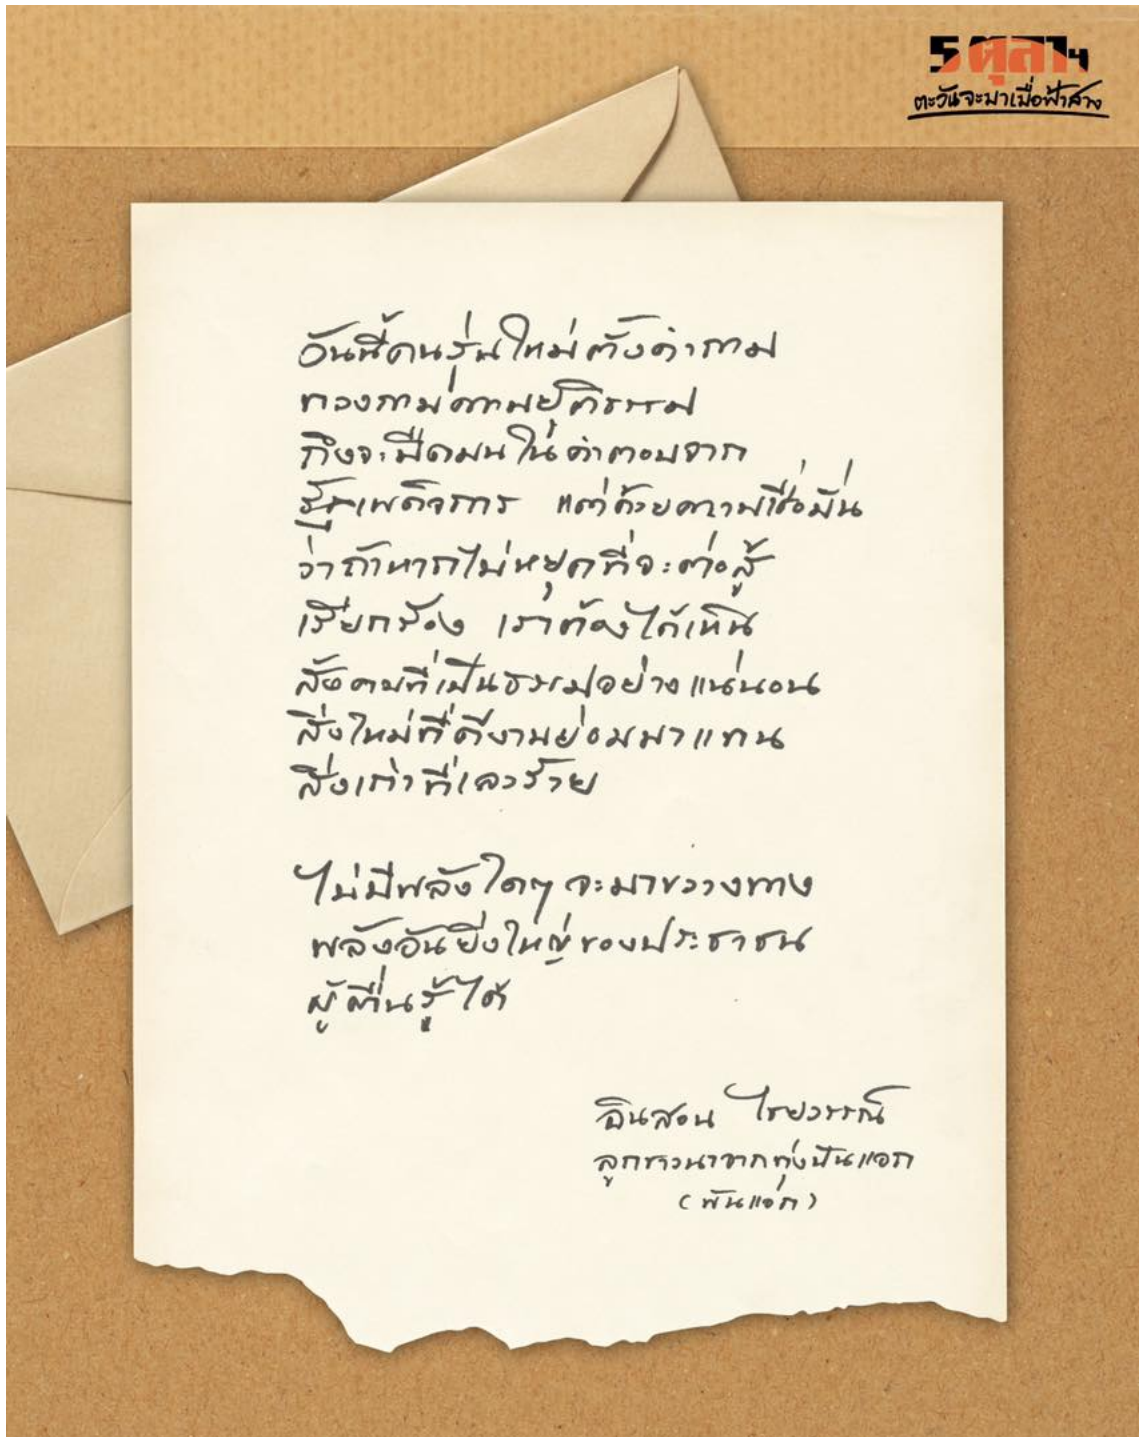 5 ตุลา 4
ตะวันจะมาเมื่อฟ้าสาง
วันนี้คนรุ่นใหม่ตั้งคำถาม
ทวงถามความยุติธรรม
ถึงจะมืดมนในคำตอบจาก
รัฐเผด็จการ แต่ด้วยความเชื่อมั่น
ว่าถ้าหากไม่หยุดที่จะต่อสู้
เรียกร้อง เราต้องได้เห็น
สังคมที่เป็นธรรมอย่างแน่นอน
สิ่งใหม่ที่ดีงามย่อมมาแทน
สิ่งเก่าที่เลวร้าย
ไม่มีพลังใดๆ จะมาขวางทาง
พลังอันยิ่งใหญ่ของประชาชน
ผู้ตื่นรู้ได้
อินสอน ไชยวรรณ์
ลูกชาวนาจากทุ่งพันแอก
(พันแอก)